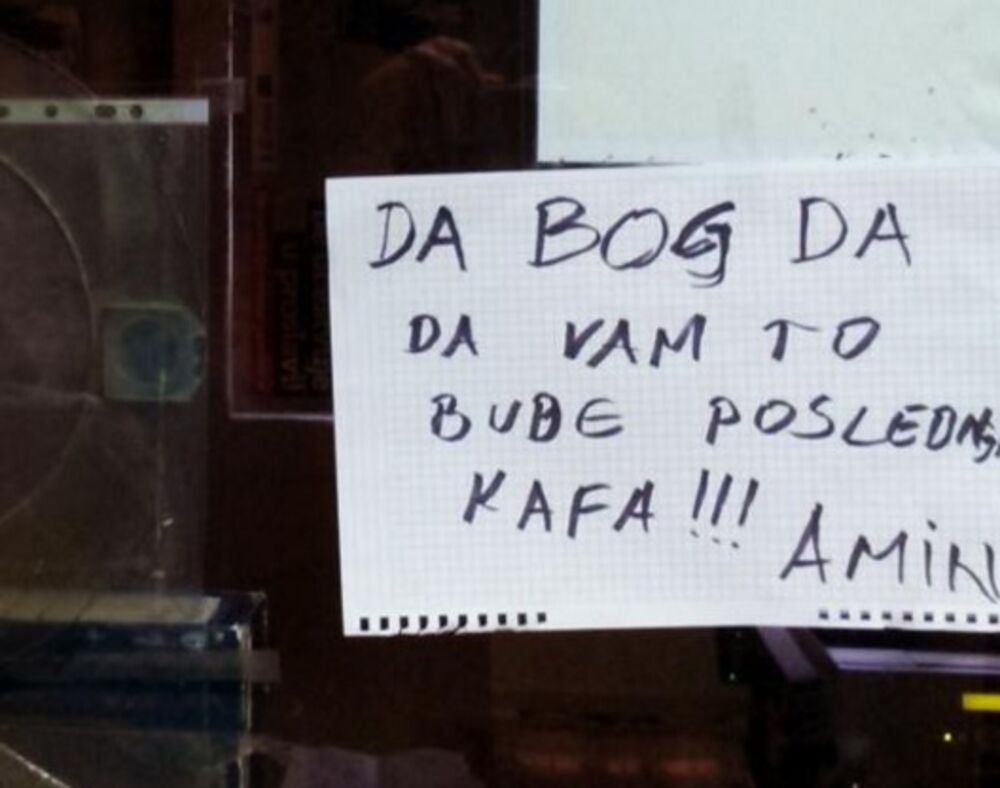 DA BOG DA
DA VAM TO
BUDE POSLEDNJA
KAFA !!!
AMIN